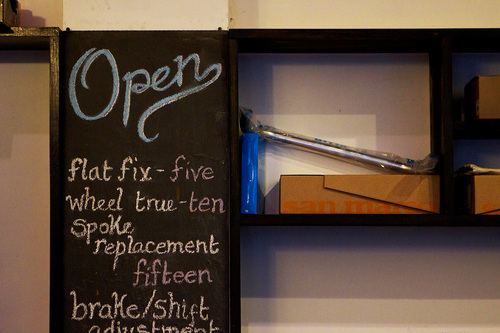 Open
flat fix - five
wheel true-ten
spoke
replacement
fifteen
brake/shift
adjustment
san marco